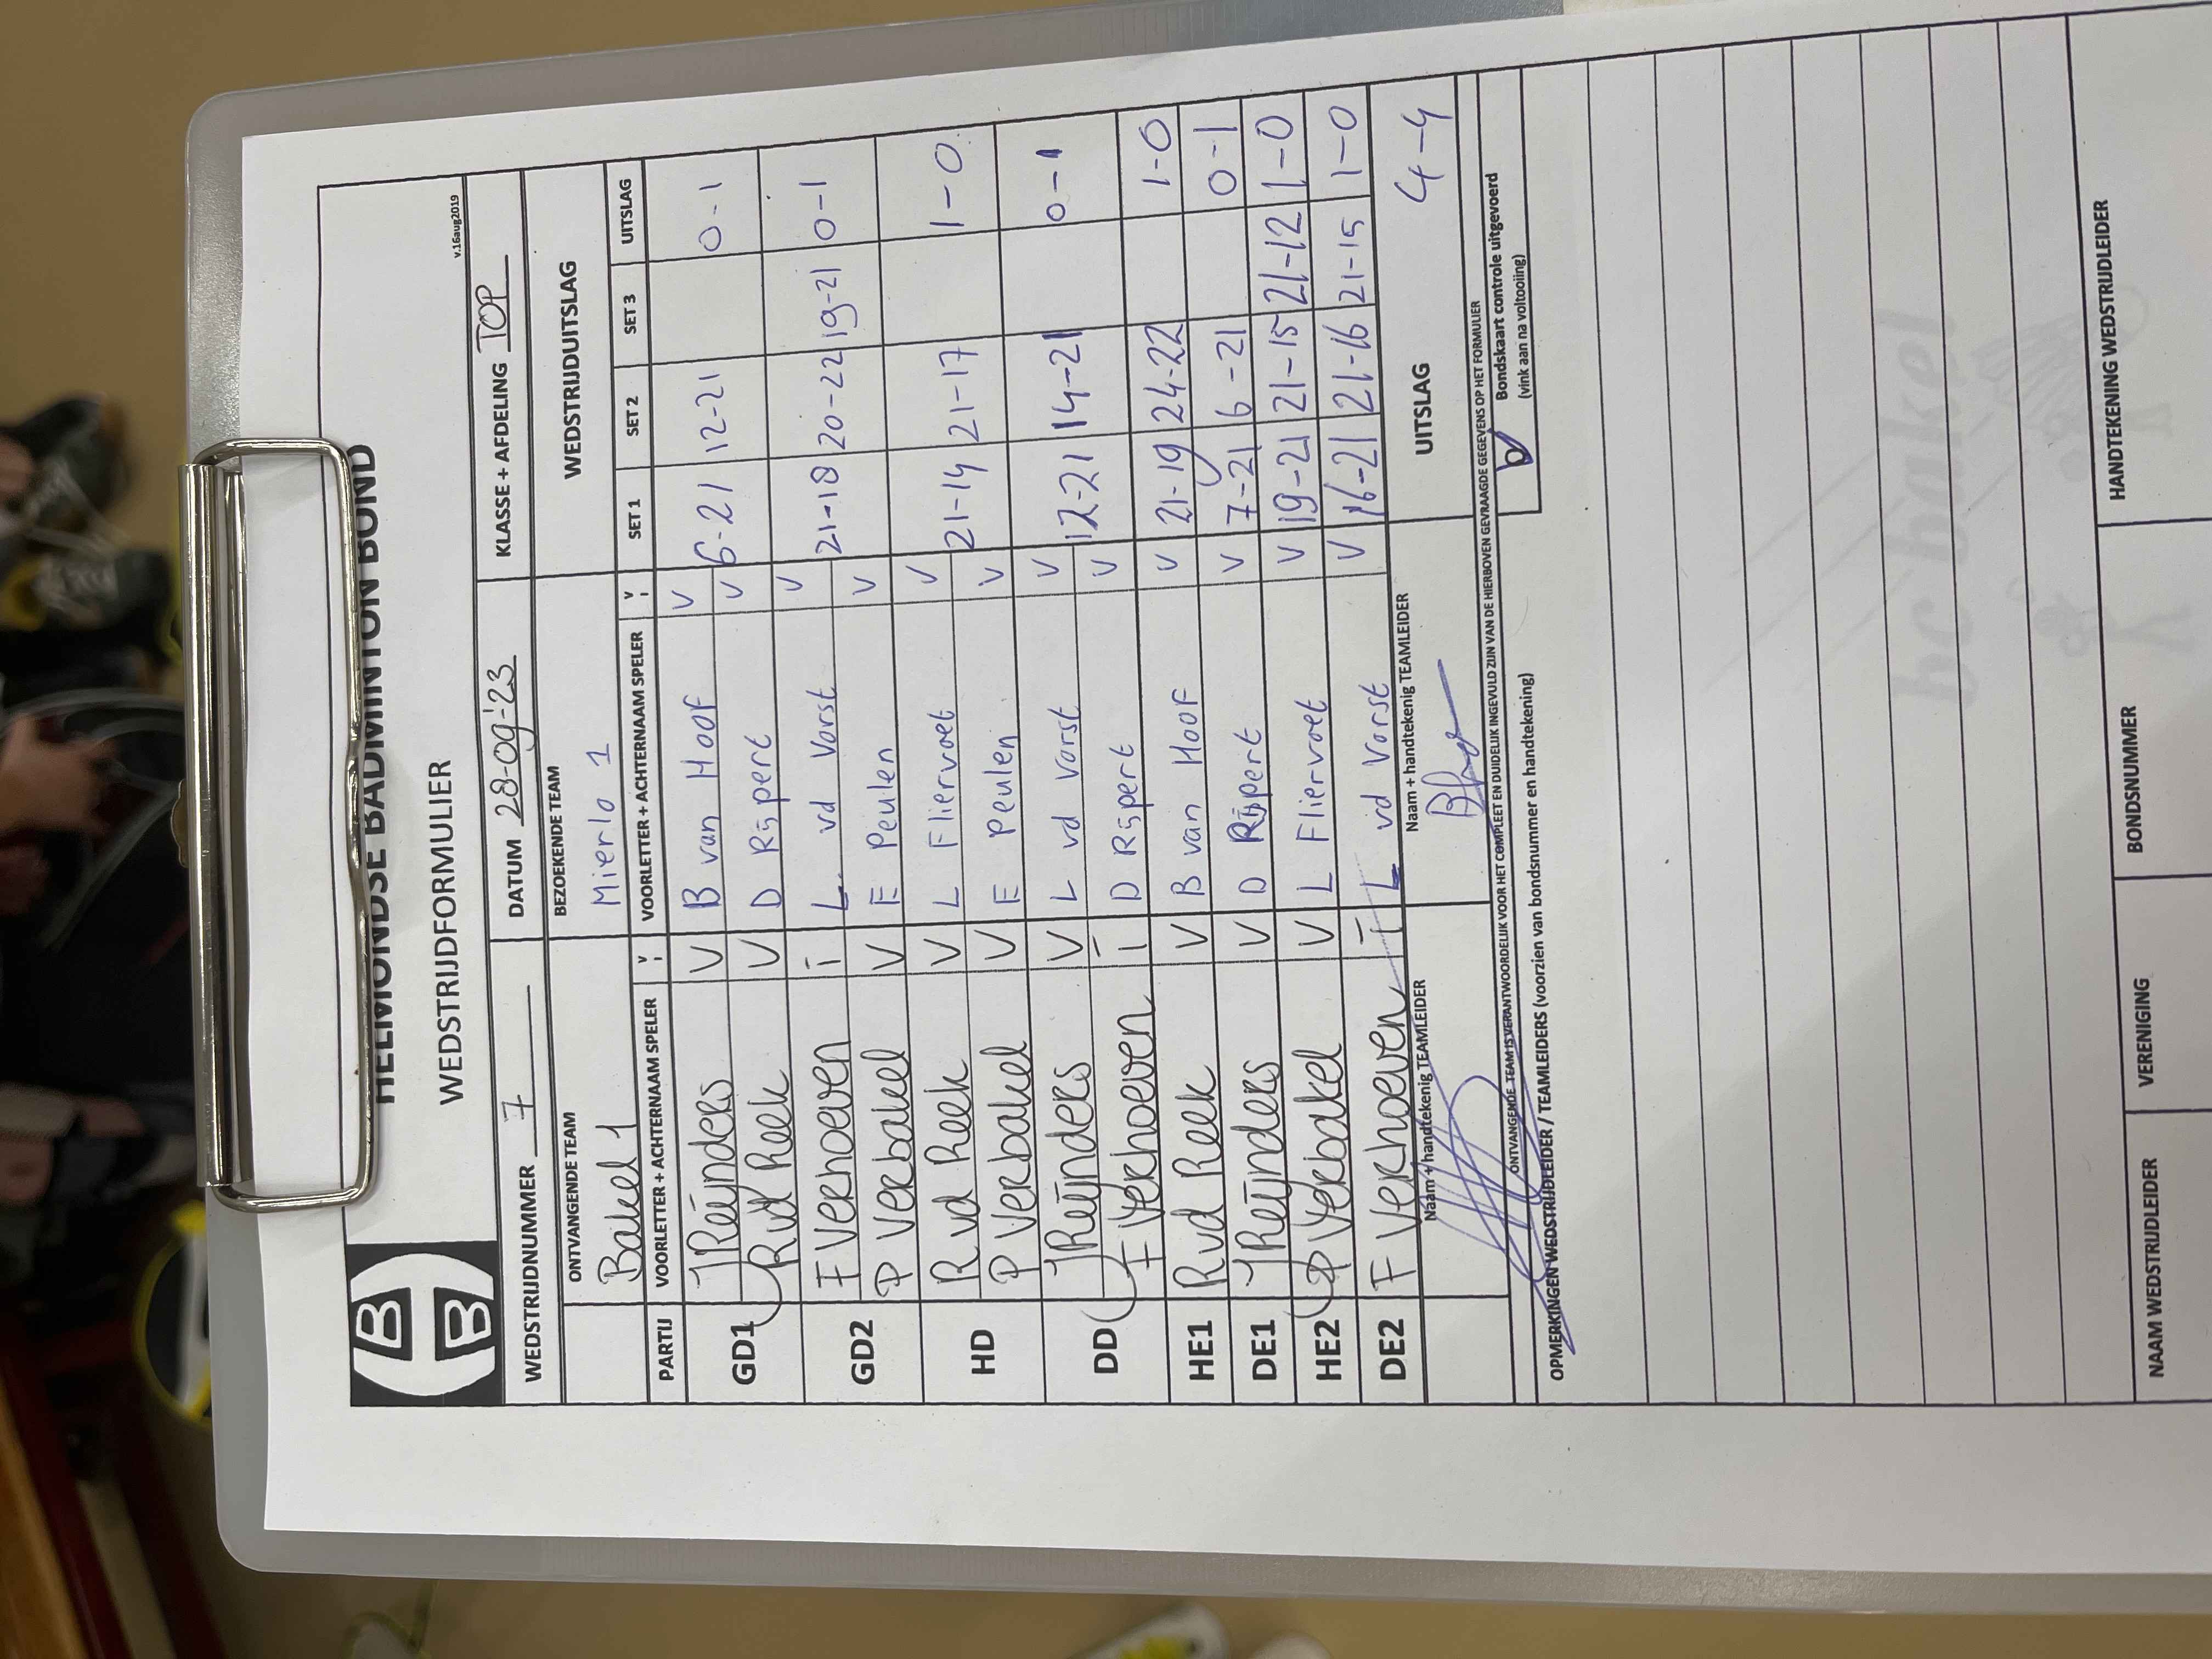 HELMONDSE BADMINTON BOND
WEDSTRIJDFORMULIER
v.16aug2019
WEDSTRIJDNUMMER 7 DATUM 28-09-'23 KLASSE + AFDELING TOP
ONTVANGENDE TEAM BEZOEKENDE TEAM WEDSTRIJDUITSLAG
Bakel 1 Mierlo 1
PARTIJ VOORLETTER + ACHTERNAAM SPELER V I VOORLETTER + ACHTERNAAM SPELER V I SET 1 SET 2 SET 3 UITSLAG
GD1 J Reijnders V B van Hoof V 6-21 12-21 0-1
R vd Reek V D Rijpert V
GD2 F Verhoeven I L vd Vorst V 21-18 20-22 19-21 0-1
P Verbakel V E Peulen V
HD R vd Reek V L Fliervoet V 21-14 21-17 1-0
P Verbakel V E Peulen V
DD J Reijnders V L vd Vorst V 12-21 14-21 0-1
F Verhoeven I D Rijpert V
HE1 R vd Reek V B van Hoof V 21-19 24-22 1-0
DE1 J Reijnders V D Rijpert V 7-21 6-21 0-1
HE2 P Verbakel V L Fliervoet V 19-21 21-15 21-12 1-0
DE2 F Verhoeven I L vd Vorst V 16-21 21-16 21-15 1-0
Naam + handtekenig TEAMLEIDER Naam + handtekenig TEAMLEIDER UITSLAG 4-4
ONTVANGENDE TEAM IS VERANTWOORDELIJK VOOR HET COMPLEET EN DUIDELIJK INGEVULD ZIJN VAN DE HIERBOVEN GEVRAAGDE GEGEVENS OP HET FORMULIER
OPMERKINGEN WEDSTRIJDLEIDER / TEAMLEIDERS (voorzien van bondsnummer en handtekening) Bondskaart controle uitgevoerd
(vink aan na voltooiing)
bc bakel
NAAM WEDSTRIJDLEIDER VERENIGING BONDSNUMMER HANDTEKENING WEDSTRIJDLEIDER